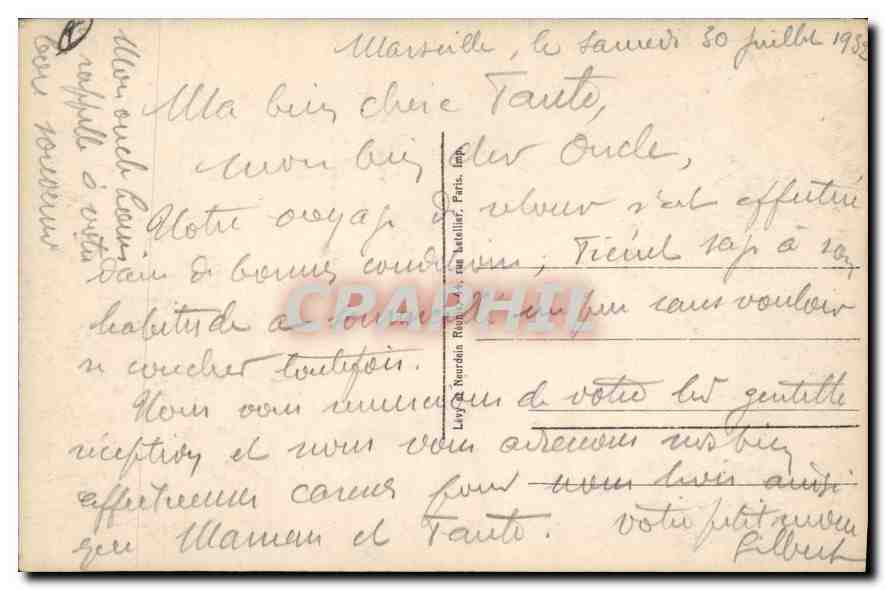 Marseille, le Samedi 30 juillet 1932
Ma bien chère Tante,
mon bien cher Oncle,
Notre voyage de retour s'est effectué
dans de bonnes conditions; sage à son
habitude a sommeillé un peu sans vouloir
se coucher toutefois.
Nous vous remercions de votre gentille
réception et nous vous adressons nos bien
affectueuses caresses pour nous trois ainsi
que Maman et Tante. Votre petit neveu
Gilbert
Mon oncle
rappelle à votre
bon souvenir
Lévy et Neurdein Réunis, 44, rue Letellier, Paris. Imp.
CPAPHIL